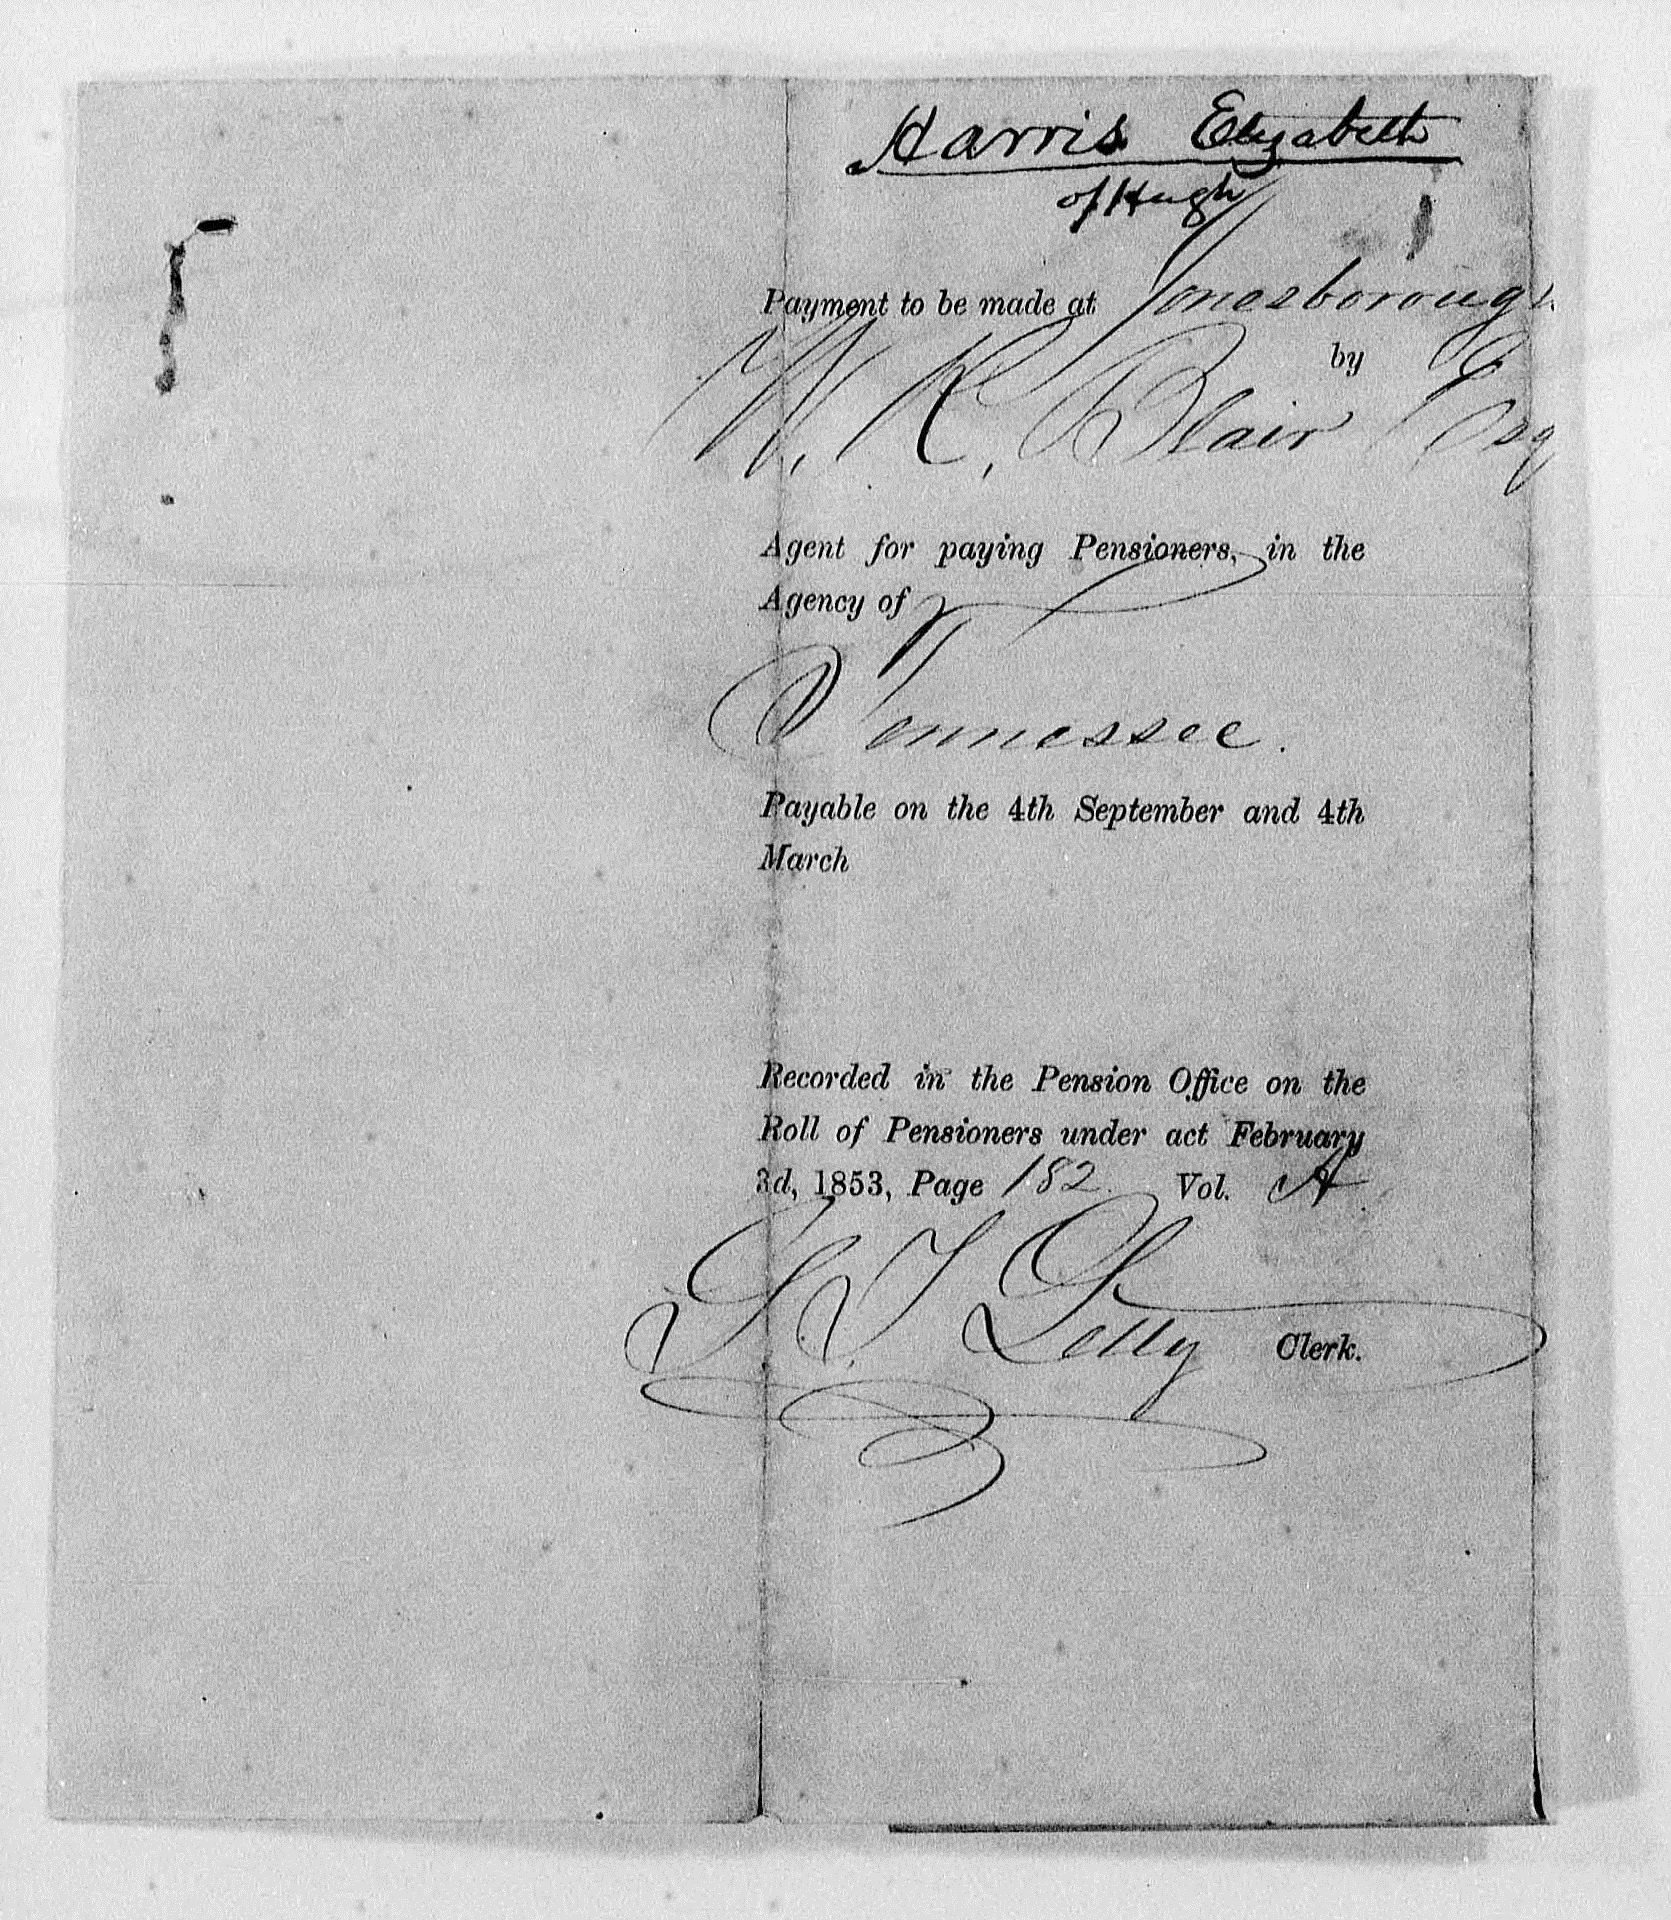 Harris Elizabeth
of Hugh
Payment to be made at Jonesborough
by
W. K. Blair Esq
Agent for paying Pensioners, in the
Agency of
Tennessee.
Payable on the 4th September and 4th
March
Recorded in the Pension Office on the
Roll of Pensioners under act February
3d, 1853, Page 182. Vol. A
Clerk.